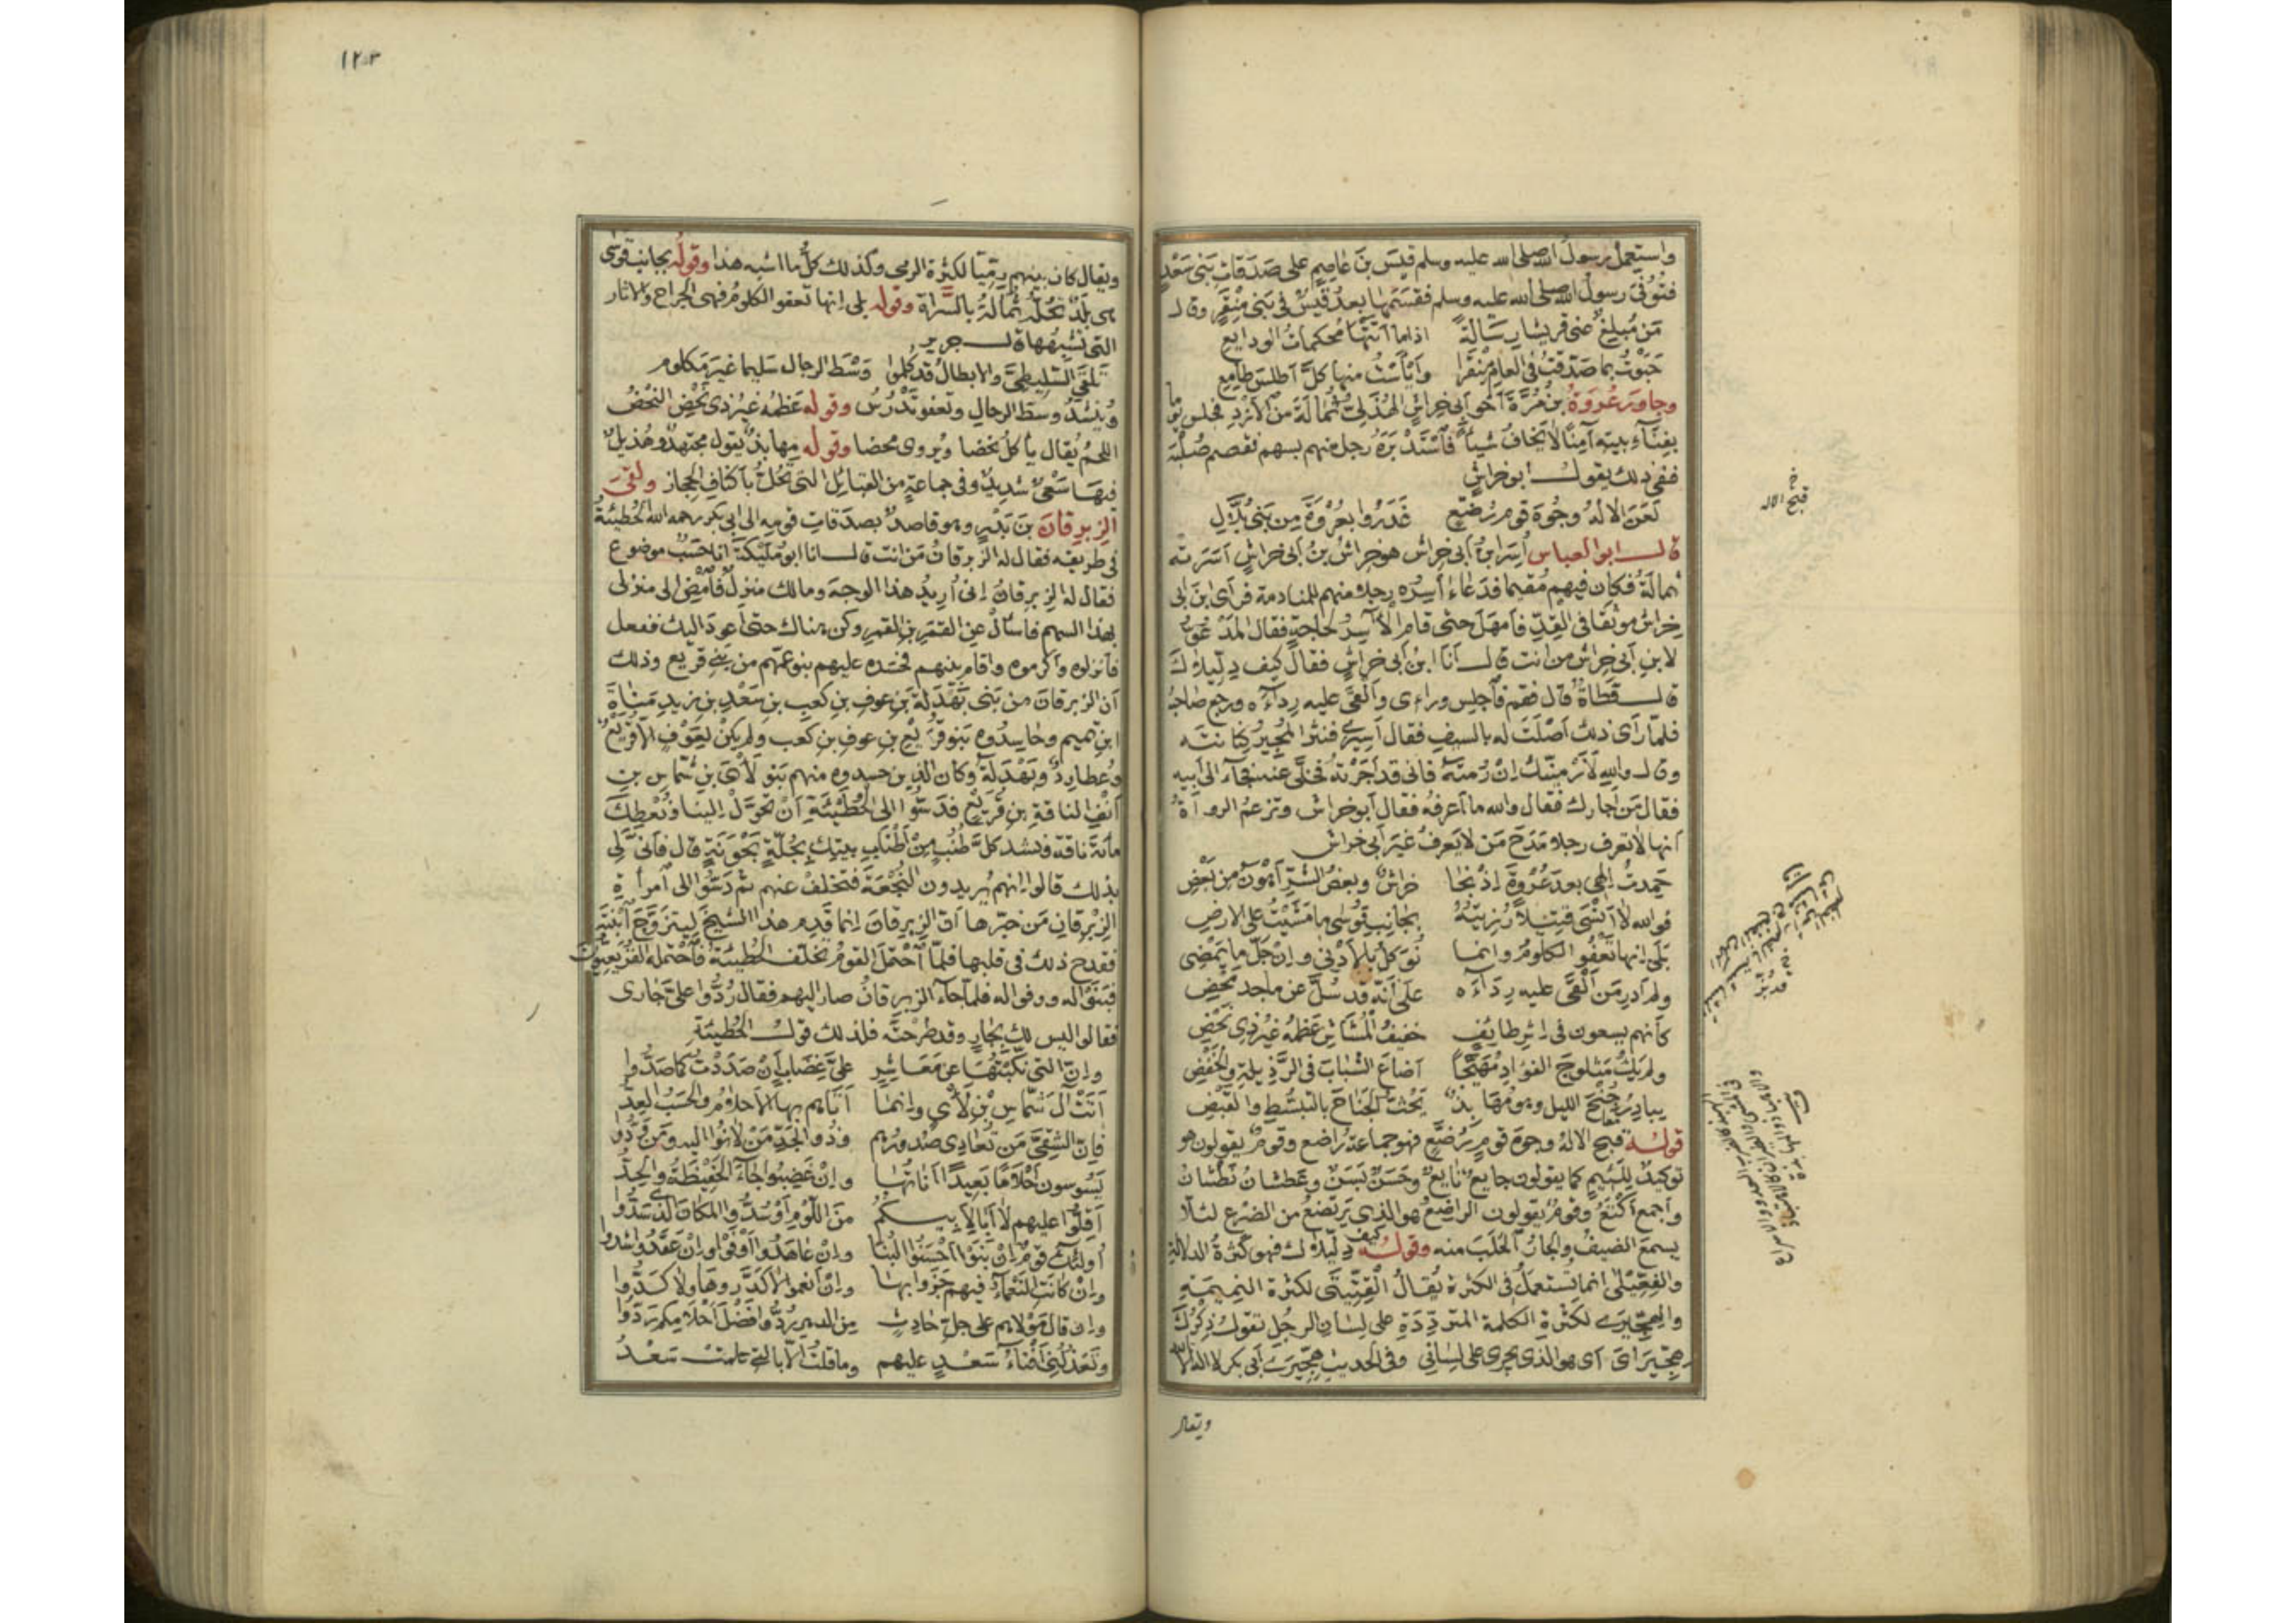 واستعمل رسول الله صلى الله عليه وسلم قيس بن عاصم على صدقات بني سعد
فتوفى رسول الله صلى الله عليه وسلم فقسمها بعد قيس في بني منقر وقال
من مبلغ عني قريشا رسالة اذا ما اتتها محكمات الودايع
حبوت بما صدقت في العام منقرا وايأست منها كل اطلس طامع
وجاور عروة بن مرة اخو ابي خراش الهذلي ثمالة من الازد فجلس يوما
بفناء بيته آمنا لا يخاف شيأ فاستدبره رجل منهم بسهم فقصم صلبه
ففى ذلك يقول ابو خراش
لعن الاله وجوه قوم رضع غدروا بعروة من بني بلال
قال ابو العباس أسر ابن ابي خراش هو خراش بن ابي خراش اسرته
ثمالة فكان فيهم مقيما فدعا آسره رجل منهم للمنادمة فرأى ابن ابي
خراش موثقا في القد فامهل حتى قام الآسر لحاجة فقال المدعو
لابن ابي خراش من انت قال انا ابن ابي خراش فقال كيف دليلاك
قال قطاة قال فقم فاجلس وراءى والقى عليه رداءه ورجع صاحبه
فلما رأى ذلك اصلت له بالسيف فقال اسيري فنثر المجير كنانته
وقال والله لارمينك ان رمته فانى قد اجرته فخلى عنه فجاء الى ابيه
فقال من اجارك فقال والله ما اعرفه فقال ابو خراش وتزعم الرواة
انها لا تعرف رجلا مدح من لا يعرف غير ابي خراش
حمدت الهي بعد عروة اذ نجا خراش وبعض الشر اهون من بعض
فوالله لا انسى قتيلا رزيته بجانب قوسى ما مشيت على الارض
بلى انها تعفو الكلوم وانما نوكل بالادنى وان جل ما يمضى
ولم ادر من القى عليه رداءه على انه قد سل عن ماجد محض
كأنهم يسعون في اثر طايف خفيف المشاش عظمه غير ذي نحض
ولم يك مثلوج الفواد مهبجا اضاع الشباب في الرذيلة والخفض
يبادر جنح الليل وهو مهابذ يحث الجناح بالتبسط والقبض
قوله قبح الاله وجوه قوم رضع فهو جماعة راضع وقوم يقولون هو
توكيد للئيم كما يقولون جايع نايع وحسن بسن وعطشان نطشان
واجمع اكتع وقوم يقولون الراضع هو الذي يرتضع من الضرع لئلا
يسمع الضيف والجار الحلب منه وقوله كيف دليلاك فهو كثرة الدلالة
والفعيلى انما تستعمل في الكثرة يقال القتيتى لكثرة النميمة
والهجيرى لكثرة الكلمة المترددة على لسان الرجل تقول ذكرك
هجيراى اى هو الذي يجرى على لساني وفى الحديث هجيرى ابي بكر لا اله الا الله
ويقال
قبح الاله
١٢٠٣
ويقال كان بينهم رميا لكثرة الرمى وكذلك كل ما اشبه هذا وقوله بجانب قوسى
هى بلد تحله ثمالة بالسراة وقوله بلى انها تعفو الكلوم فهى الجراح والاثار
التى تشبهها قال جرير
تلقى السليطي والابطال قد كلموا وسط الرجال سليما غير مكلوم
وينشد وسط الرحال وتعفو تدرس وقوله عظمه غير ذى نحض النحض
اللحم يقال يأكل نحضا ويروى محضا وقوله مهابذ يقول مجتهد وهذيل
فيها سعى شديد وفى جماعة من القبائل التى تحل باكناف الحجاز ولقى
الزبرقان بن بدر وهو قاصد بصدقات قومه الى ابي بكر رحمه الله الحطيئة
فى طريقه فقال له الزبرقان من انت قال انا ابو مليكة انا حسب موضوع
فقال له الزبرقان انى أريد هذا الوجه ومالك منزل فامض الى منزلى
بهذا السهم فاسأل عن القمر بن القمر وكن هناك حتى اعود اليك ففعل
فانزلوه واكرموه واقام بينهم فحسده عليهم بنو عمهم من بني قريع وذلك
ان الزبرقان من بنى بهدلة بن عوف بن كعب بن سعد بن زيد مناة
ابن تميم وحاسدوه بنو قريع بن عوف بن كعب ولم يكن لعوف الا قريع
وعطارد وبهدلة وكان الذين حسدوه منهم بنو لأى بن شماس بن
انف الناقة بن قريع فدسوا الى الحطيئة ان تحول الينا ونعطك
مائة ناقة ونشد كل طنب من اطناب بيتك بجلة بحونة قال فانى لى
بذلك قالوا انهم يريدون النجعة فتخلف عنهم ثم دسوا الى امرأة
الزبرقان من خبرها ان الزبرقان انما قدم هذا الشيخ ليتزوج ابنته
فقدح ذلك فى قلبها فلما احتمل القوم تخلف الحطيئة فاحتمله القريعيون
فبنوا له ووفوا له فلما جاء الزبرقان صار اليهم فقال ردوا على جارى
فقالوا ليس لك بجار وقد طرحته فلذلك قول الحطيئة
وان التى نكبتها عن معاشر على غضاب ان صددت كما صدوا
اتت آل شماس بن لأى وانما اتاهم بها الاحلام والحسب العد
فان الشقى من تعادى صدورهم وذو الجد من لانوا اليه ومن ودوا
يسوسون احلاما بعيدا اناتها وان غضبوا جاء الحفيظة والجد
اقلوا عليهم لا ابا لابيكم من اللوم او سدوا المكان الذى سدوا
أولئك قوم ان بنوا احسنوا البنا وان عاهدوا اوفوا وان عقدوا شدوا
وان كانت النعماء فيهم جزوا بها وان انعموا لا كدروها ولا كدوا
وان قال مولاهم على جل حادث من الدهر ردوا فضل احلامكم ردوا
وتعذلنى افناء سعد عليهم وما قلت الا بالتى علمت سعد